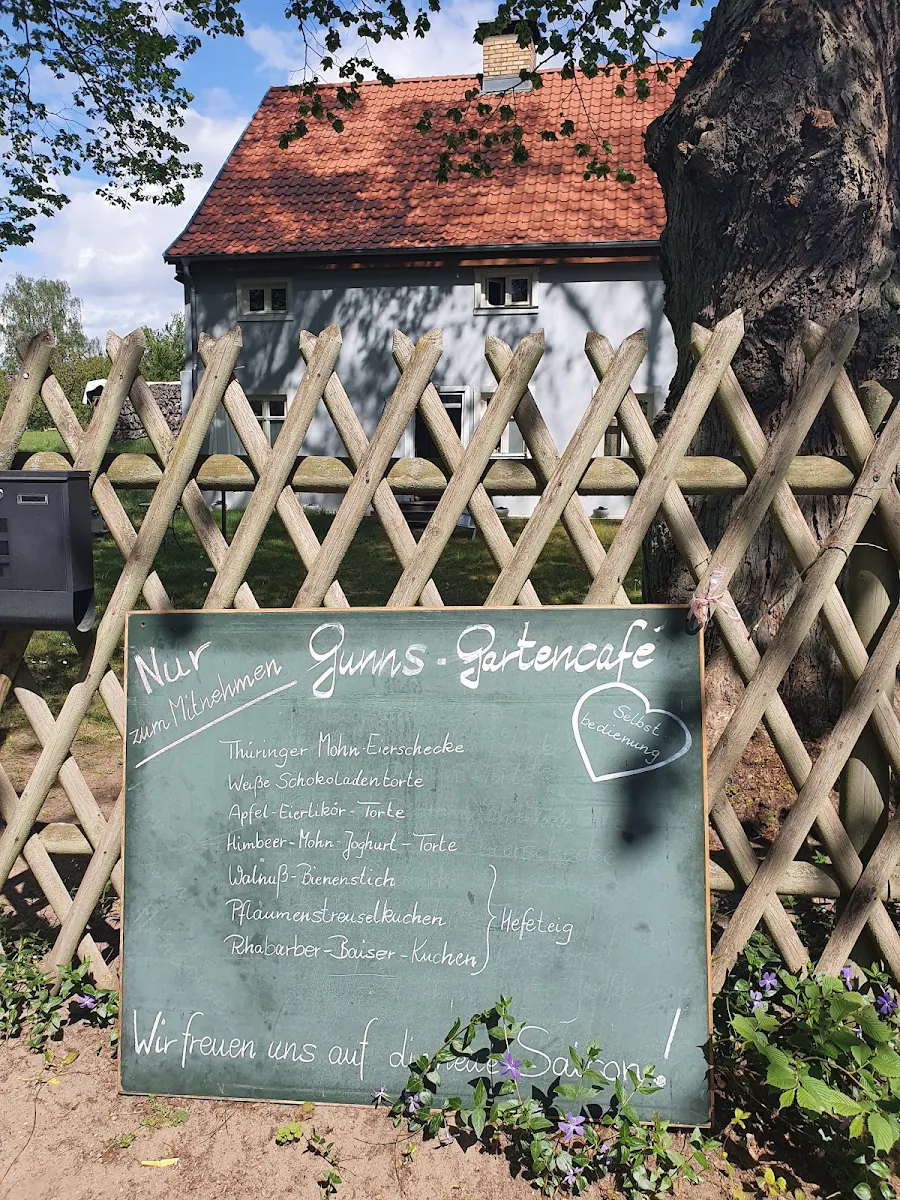 Nur
zum Mitnehmen
Gunns-Gartencafé
Selbst-
bedienung
Thüringer Mohn-Eierschecke
Weiße Schokoladentorte
Apfel-Eierlikör-Torte
Himbeer-Mohn-Joghurt-Torte
Walnuß-Bienenstich
Pflaumenstreuselkuchen
Rhabarber-Baiser-Kuchen
Hefeteig
Wir freuen uns auf die neue Saison!